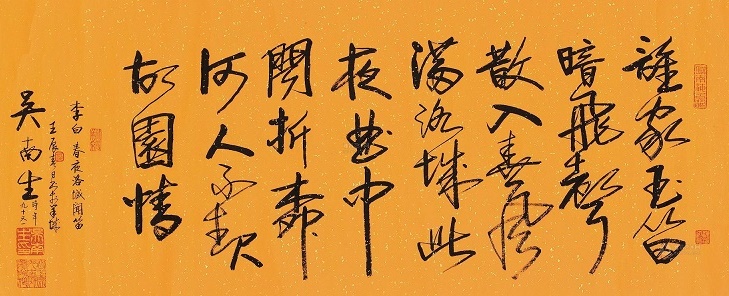 誰家玉笛
暗飛聲
散入春風
滿洛城此
夜曲中
聞折柳
何人不起
故園情
李白 春夜洛城聞笛
壬辰春日书於羊城
吴南生